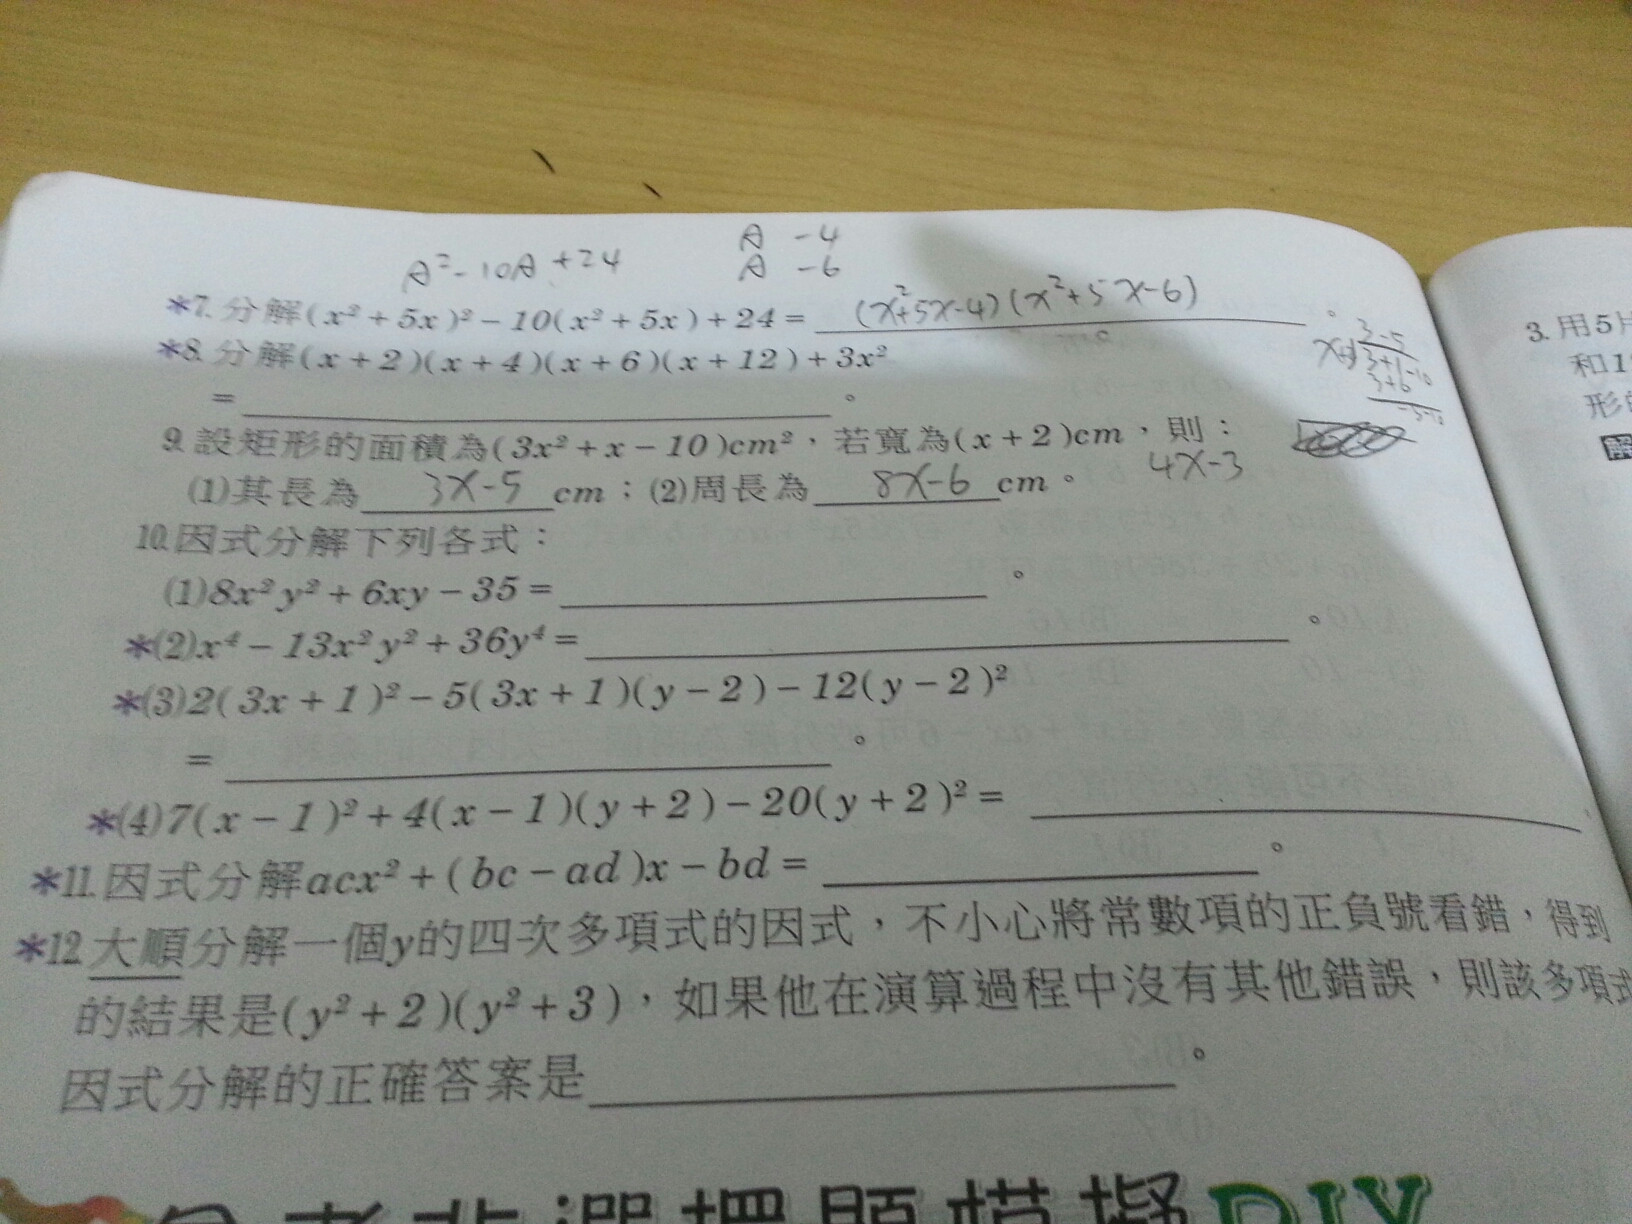 A²-10A+24
A -4
A -6
*7. 分解(x²+5x)²-10(x²+5x)+24= (x²+5x-4)(x²+5x-6)。
*8. 分解(x+2)(x+4)(x+6)(x+12)+3x²
=。
9. 設矩形的面積為(3x²+x-10)cm²,若寬為(x+2)cm,則:
4x-3
(1)其長為 3x-5 cm;(2)周長為 8x-6 cm。
10. 因式分解下列各式:
(1)8x²y²+6xy-35=。
*(2)x⁴-13x²y²+36y⁴=。
*(3)2(3x+1)²-5(3x+1)(y-2)-12(y-2)²
=。
*(4)7(x-1)²+4(x-1)(y+2)-20(y+2)²=
*11. 因式分解acx²+(bc-ad)x-bd=。
*12. 大順分解一個y的四次多項式的因式,不小心將常數項的正負號看錯,得到
的結果是(y²+2)(y²+3),如果他在演算過程中沒有其他錯誤,則該多項式
因式分解的正確答案是。
非選擇題模擬DIY
3. 用5片
和1
形的
解